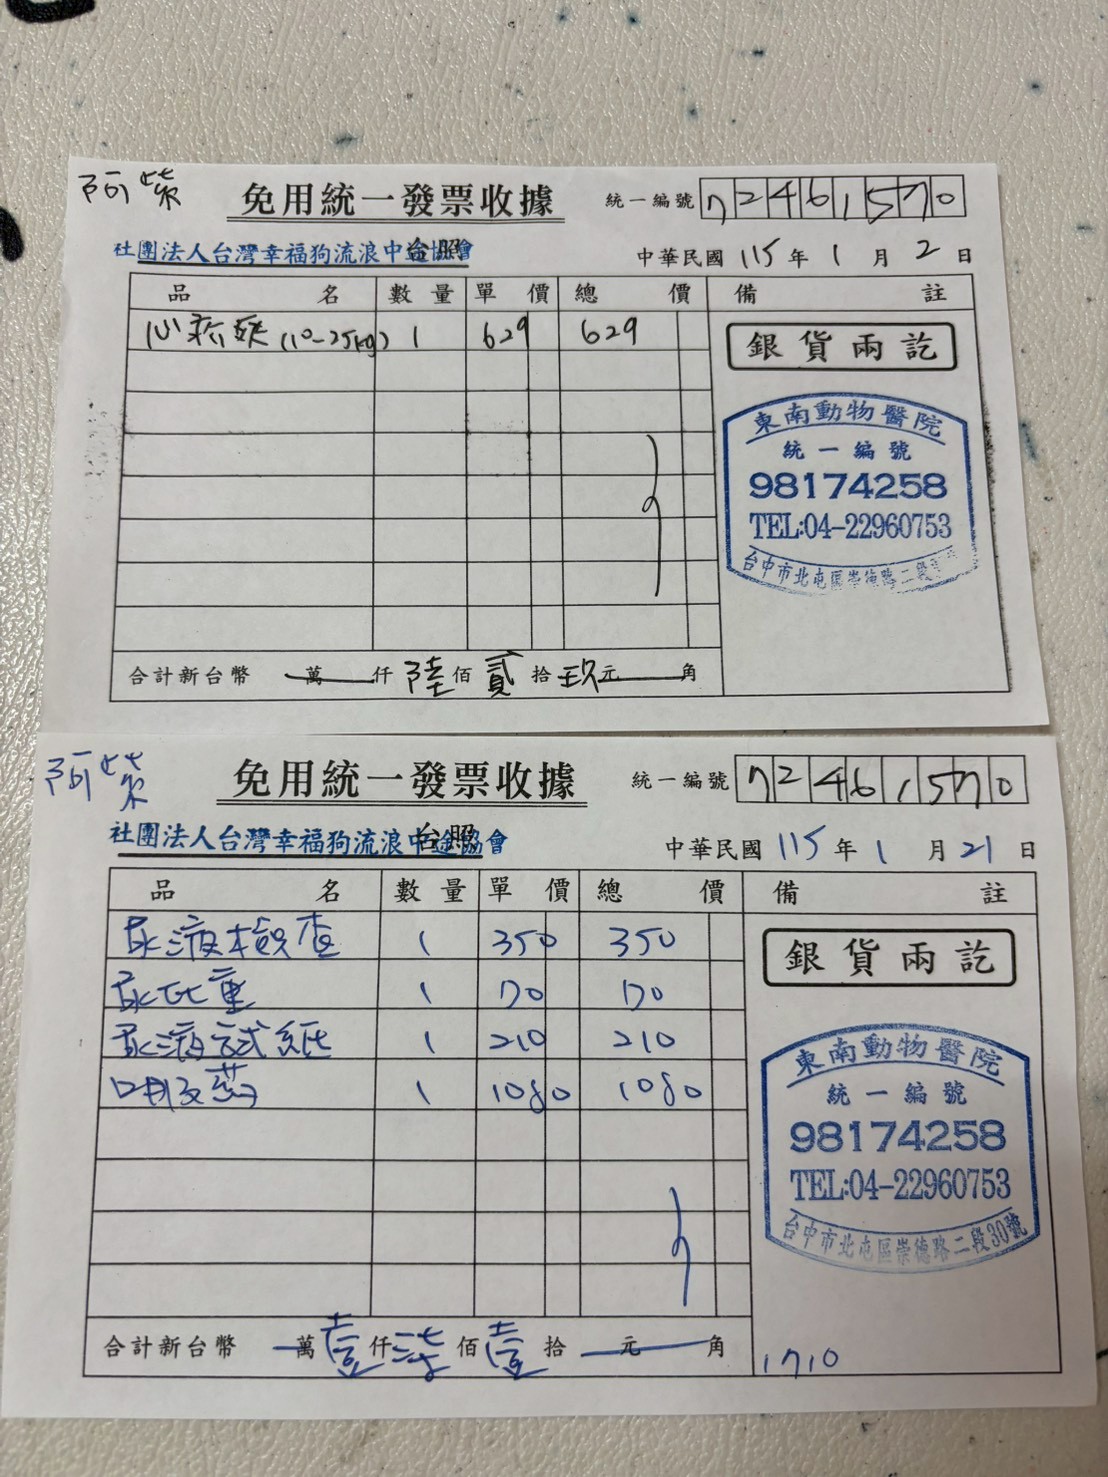 阿柴
免用統一發票收據
統一編號 72461570
社團法人台灣幸福狗流浪中途協會
台照
中華民國 115 年 1 月 2 日
品名 數量 單價 總價 備註
心疥爽 (10-25kg) 1 629 629
銀貨兩訖
東南動物醫院
統一編號
98174258
TEL:04-22960753
台中市北屯區崇德路二段
合計新台幣 萬 仟 陸 佰 貳 拾 玖 元 角
阿柴
免用統一發票收據
統一編號 72461570
社團法人台灣幸福狗流浪中途協會
台照
中華民國 115 年 1 月 21 日
品名 數量 單價 總價 備註
尿液檢查 1 350 350
尿比重 1 70 70
尿液試紙 1 210 210
口服藥 1 1080 1080
銀貨兩訖
東南動物醫院
統一編號
98174258
TEL:04-22960753
台中市北屯區崇德路二段30號
合計新台幣 萬 壹 仟 柒 佰 壹 拾 元 角
1710